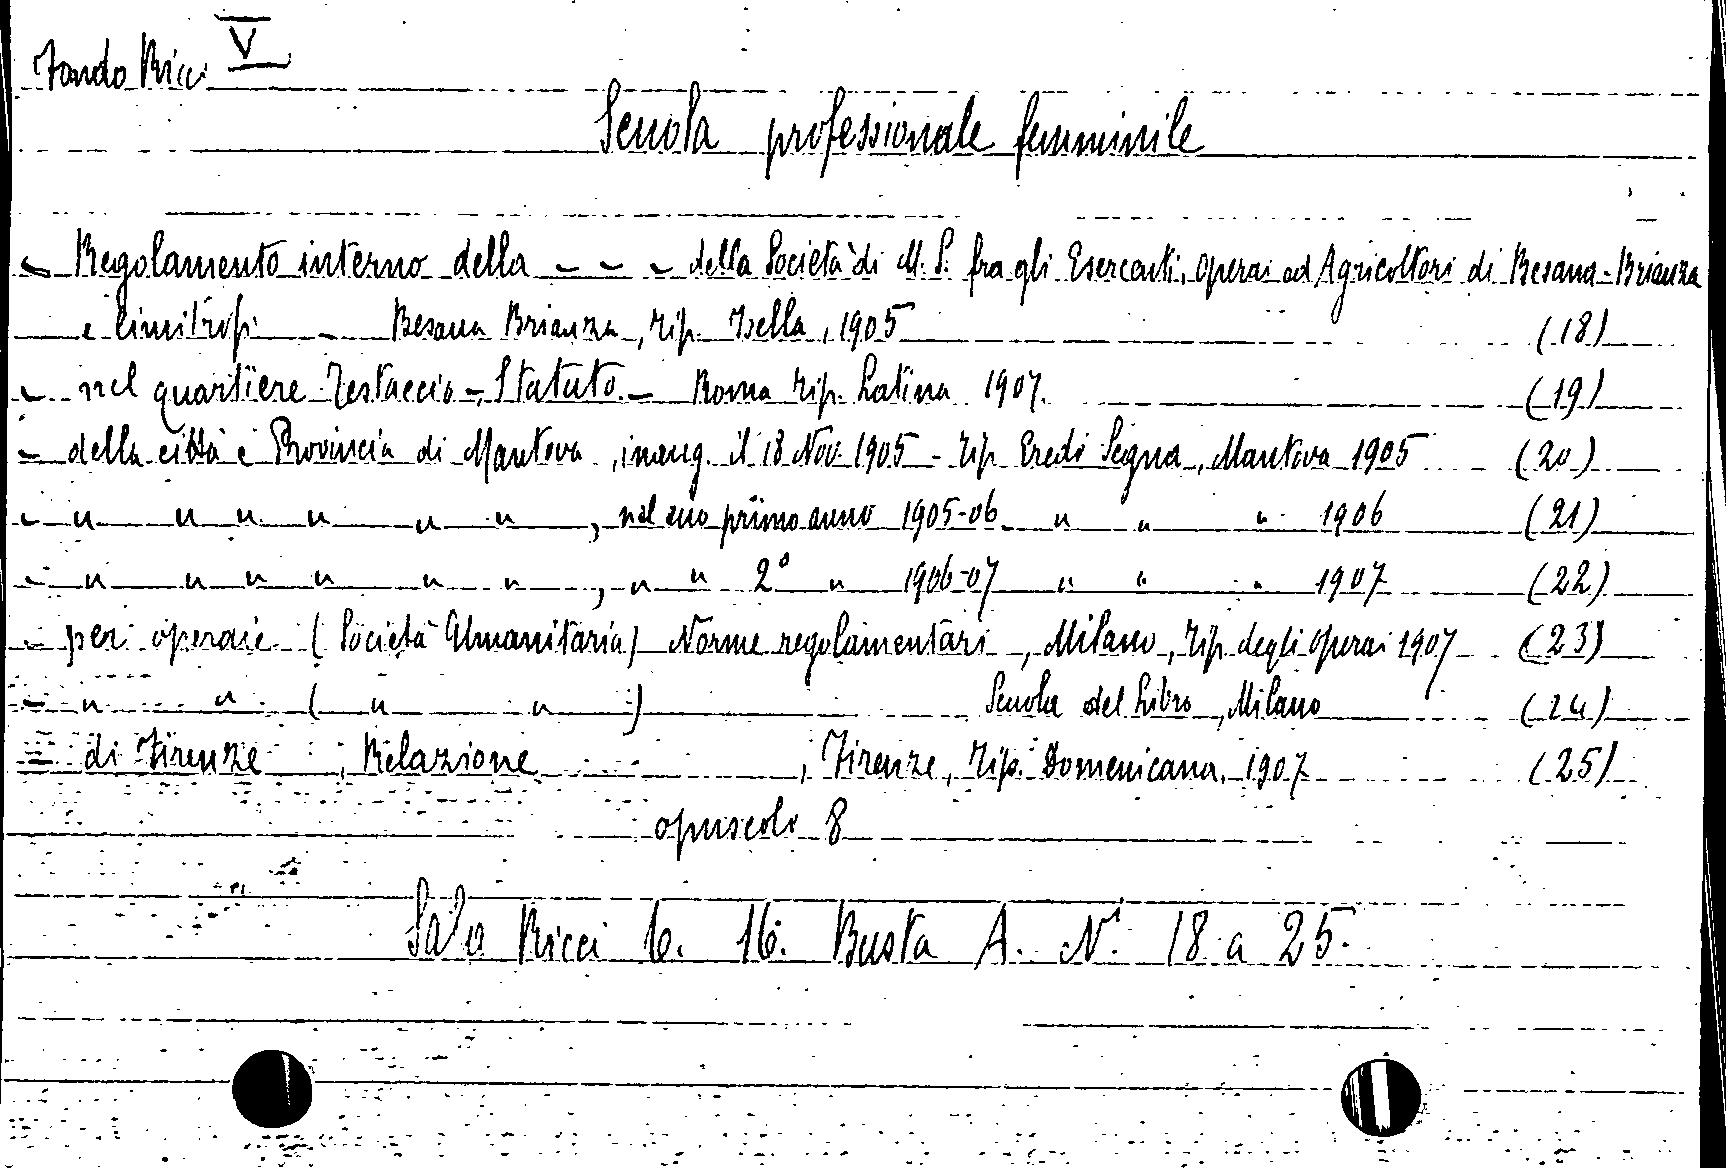 Fondo Ricci V
Scuola professionale femminile
- Regolamento interno della - - - della Società di M. S. fra gli Esercenti, Operai ed Agricoltori di Besana-Brianza
e limitrofi - Besana Brianza, Tip. Isella, 1905 (18)
- nel quartiere Testaccio - Statuto. - Roma Tip. Latina 1907. (19)
- della città e Provincia di Mantova, inaug. il 18 Nov. 1905 - Tip. Eredi Segna, Mantova 1905 (20)
- " " " " " ", nel suo primo anno 1905-06 " " " 1906 (21)
- " " " " " ", " " 2° " 1906-07 " " " 1907 (22)
- per operaie (Società Umanitaria) Norme regolamentari, Milano, Tip. degli Operai 1907 (23)
- " " ( " " ) Scuola del Libro, Milano (24)
= di Firenze, Relazione, Firenze, Tip. Domenicana, 1907 (25)
opuscolo 8
Sala Ricci 6. 16. Busta A. N. 18 a 25.